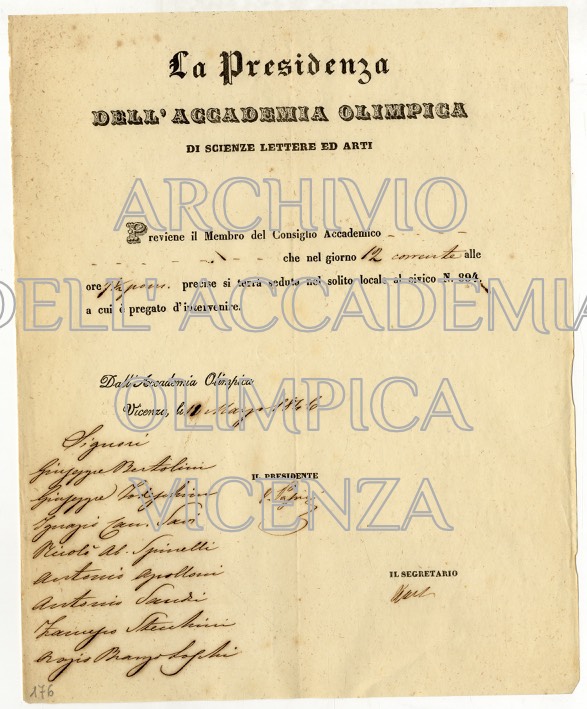 La Presidenza
DELL'ACCADEMIA OLIMPICA
DI SCIENZE LETTERE ED ARTI
ARCHIVIO
Previene il Membro del Consiglio Accademico
che nel giorno 12 corrente alle
ore pom. precise si terrà seduta nel solito locale al civico N. 894,
DELL'ACCADEMIA
a cui è pregato d'intervenire.
Dall'Accademia Olimpica
OLIMPICA
Vicenza, li Maggo 1866
Signori
Giuseppe Bertolini
IL PRESIDENTE
Giuseppe
VICENZA
Ignazio Cav.
Nicolò Ab. Spinelli
Antonio Apolloni
IL SEGRETARIO
Antonio Sandi
Stecchini
Branzo Loschi
176